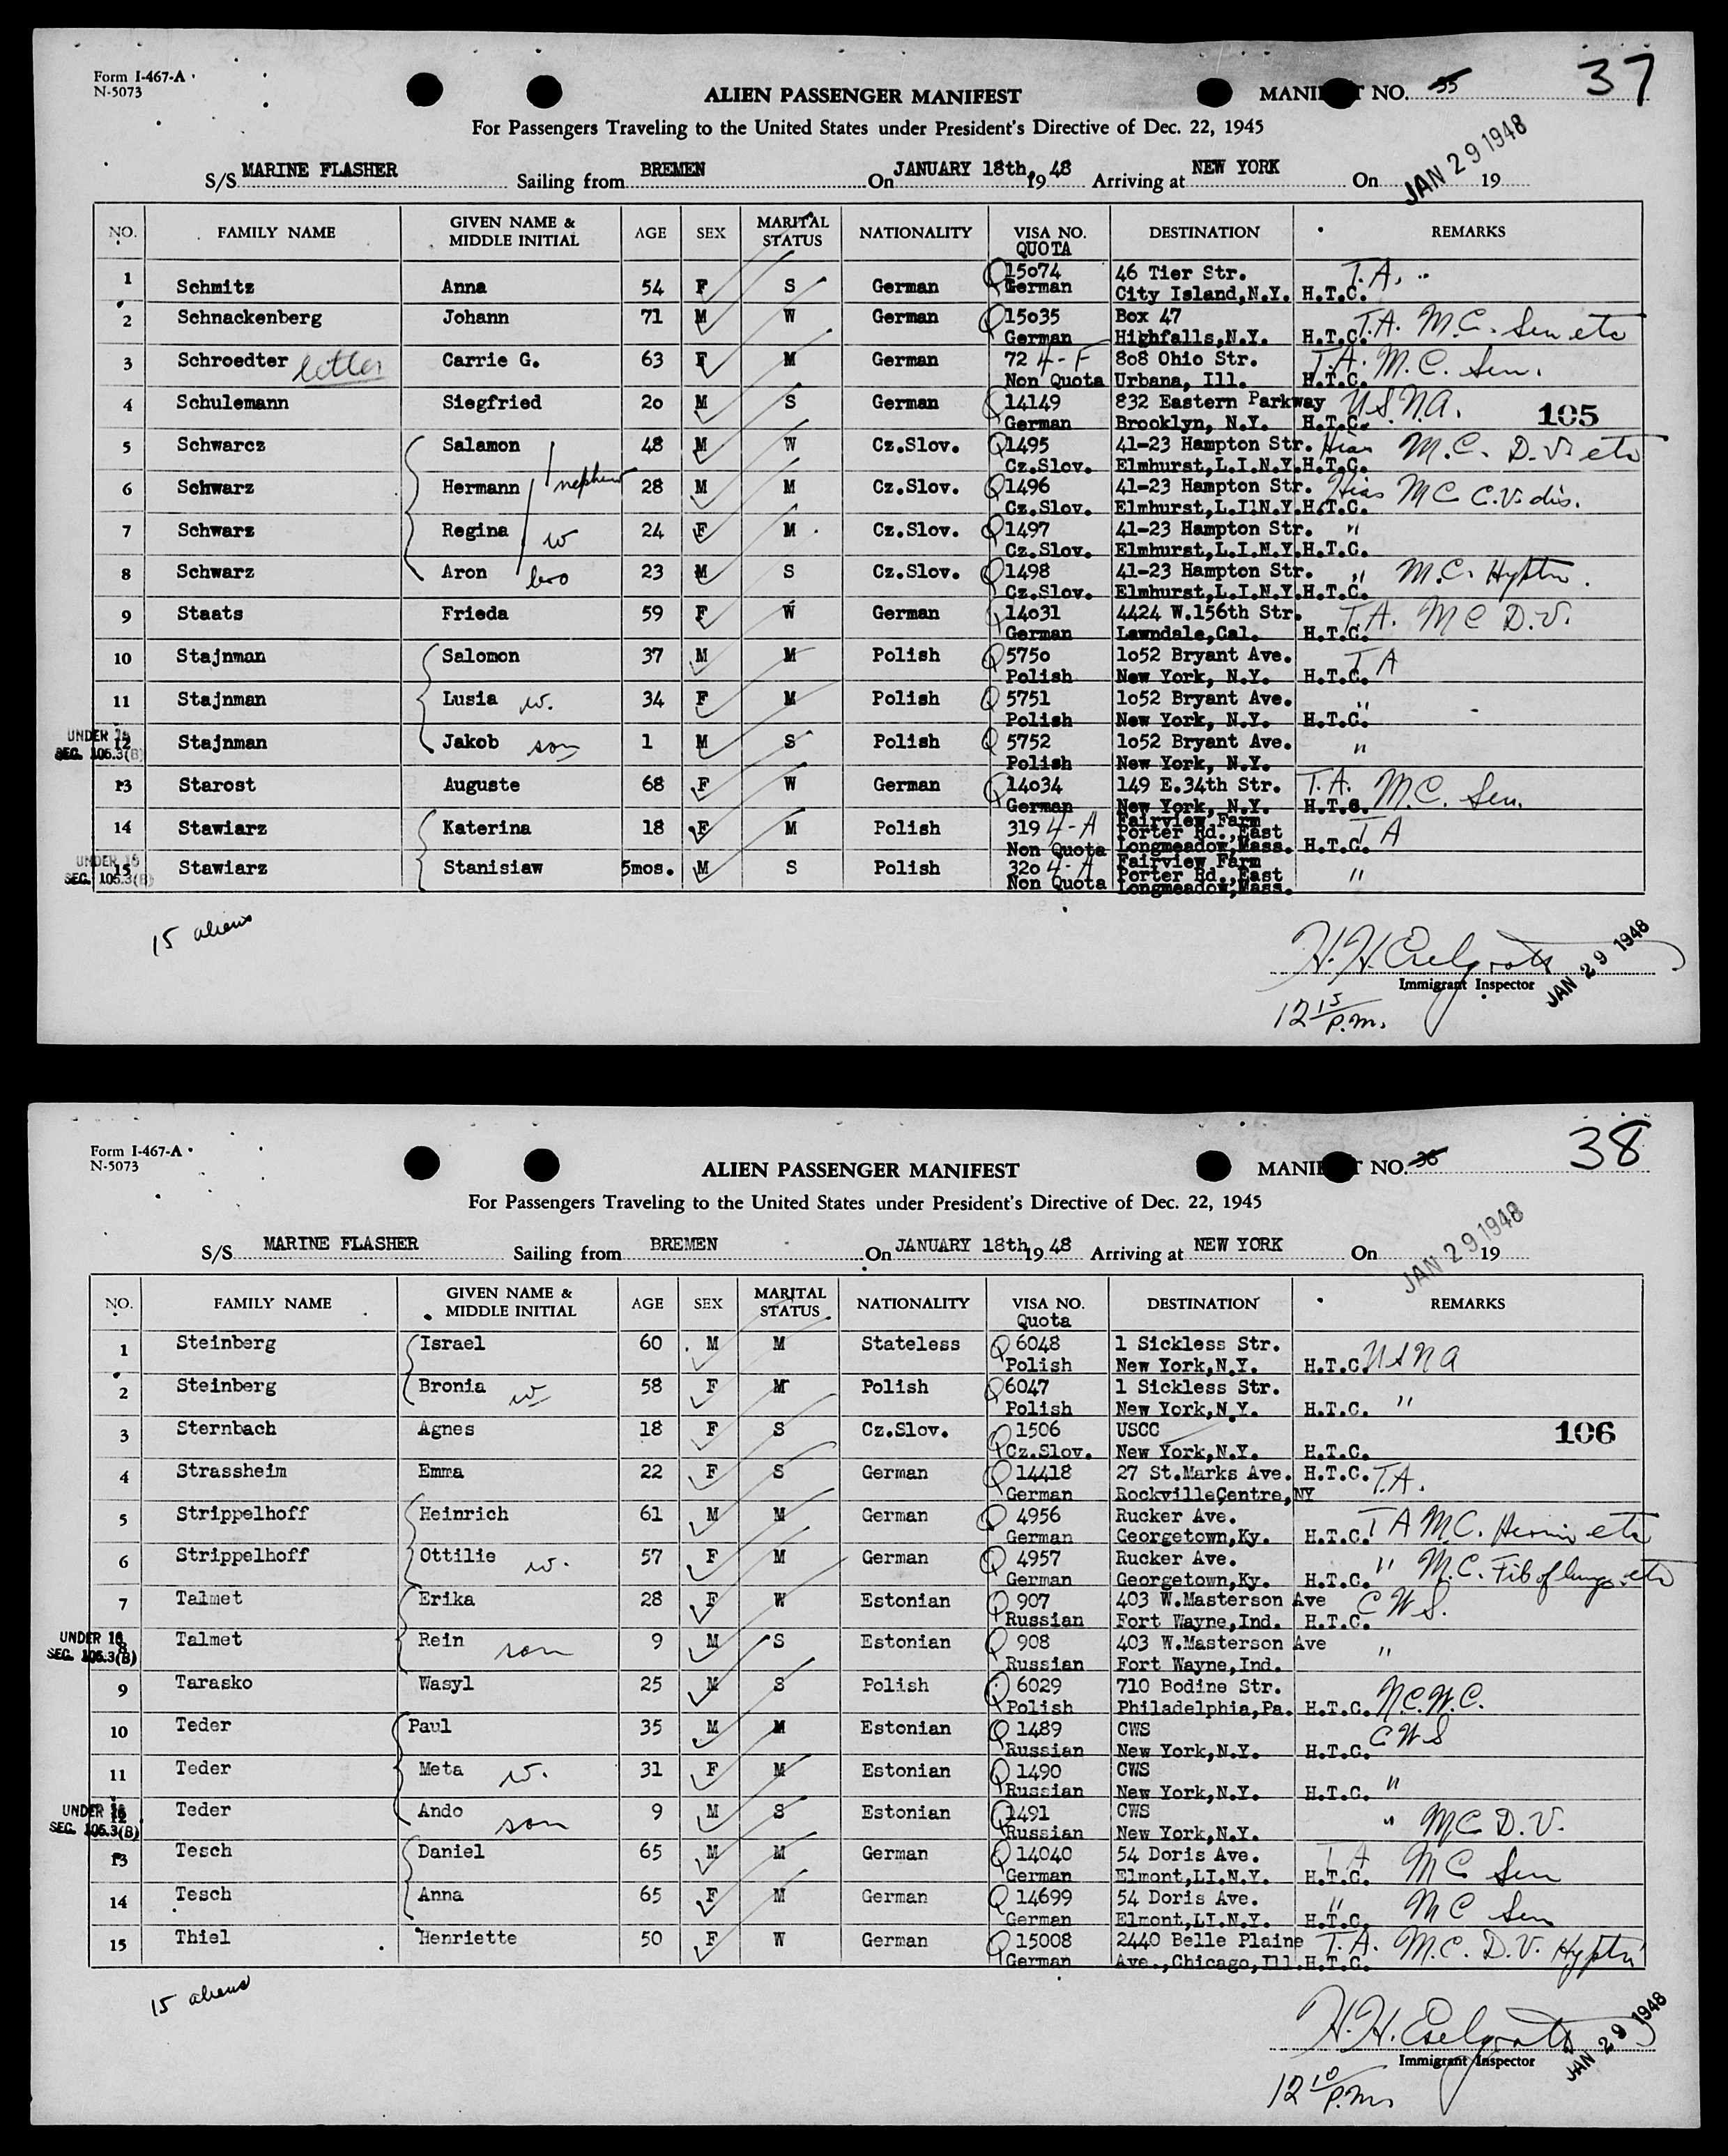 Form I-467-A
N-5073
ALIEN PASSENGER MANIFEST
MANI T NO. 35 37
For Passengers Traveling to the United States under President's Directive of Dec. 22, 1945
S/S MARINE FLASHER Sailing from BREMEN On JANUARY 18th, 19 48 Arriving at NEW YORK On JAN 29 1948 19
NO. FAMILY NAME GIVEN NAME & MIDDLE INITIAL AGE SEX MARITAL STATUS NATIONALITY VISA NO. QUOTA DESTINATION REMARKS
1 Schmitz Anna 54 F S German Q 15074 46 Tier Str. T.A.
German City Island,N.Y. H.T.C.
2 Schnackenberg Johann 71 M W German Q 15035 Box 47 T.A. M.C. Sen etc
German Highfalls,N.Y. H.T.C.
3 Schroedter letter Carrie G. 63 F M German 72 4-F 808 Ohio Str. T.A. M.C. Sen.
Non Quota Urbana, Ill. H.T.C.
4 Schulemann Siegfried 20 M S German Q 14149 832 Eastern Parkway U.S.N.A. 105
German Brooklyn, N.Y. H.T.C.
5 Schwarcz Salamon 48 M W Cz.Slov. Q 1495 41-23 Hampton Str. Hias M.C. D.V. etc
Cz.Slov. Elmhurst,L.I.N.Y. H.T.C.
6 Schwarz Hermann nephew 28 M M Cz.Slov. Q 1496 41-23 Hampton Str. Hias MC C.V. dis.
Cz.Slov. Elmhurst,L.I.N.Y. H.T.C.
7 Schwarz Regina w 24 F M Cz.Slov. Q 1497 41-23 Hampton Str. "
Cz.Slov. Elmhurst,L.I.N.Y. H.T.C.
8 Schwarz Aron bro 23 M S Cz.Slov. Q 1498 41-23 Hampton Str. " M.C. Hyptn.
Cz.Slov. Elmhurst,L.I.N.Y. H.T.C.
9 Staats Frieda 59 F W German 14031 4424 W.156th Str. T.A. MC D.V.
German Lawndale,Cal. H.T.C.
10 Stajnman Salomon 37 M M Polish Q 5750 1052 Bryant Ave. T A
Polish New York, N.Y. H.T.C.
11 Stajnman Lusia w. 34 F M Polish Q 5751 1052 Bryant Ave. "
Polish New York, N.Y. H.T.C.
UNDER 16
SEC. 105.3(B)
12 Stajnman Jakob son 1 M S Polish Q 5752 1052 Bryant Ave. "
Polish New York, N.Y.
13 Starost Auguste 68 F W German Q 14034 149 E.34th Str. T.A. M.C. Sen.
German New York, N.Y. H.T.C.
14 Stawiarz Katerina 18 F M Polish 319 4-A Fairview Farm T A
Porter Rd.,East
Non Quota Longmeadow,Mass. H.T.C.
UNDER 16
SEC. 105.3(B)
15 Stawiarz Stanisiaw 5mos. M S Polish 320 4-A Fairview Farm "
Porter Rd.,East
Non Quota Longmeadow,Mass.
15 aliens
Immigrant Inspector
JAN 29 1948
12 15 P.m.
Form I-467-A
N-5073
ALIEN PASSENGER MANIFEST
MANI T NO. 36 38
For Passengers Traveling to the United States under President's Directive of Dec. 22, 1945
S/S MARINE FLASHER Sailing from BREMEN On JANUARY 18th 19 48 Arriving at NEW YORK On JAN 29 1948 19
NO. FAMILY NAME GIVEN NAME & MIDDLE INITIAL AGE SEX MARITAL STATUS NATIONALITY VISA NO. Quota DESTINATION REMARKS
1 Steinberg Israel 60 M M Stateless Q 6048 1 Sickless Str.
Polish New York,N.Y. H.T.C. USNA
2 Steinberg Bronia w 58 F M Polish Q 6047 1 Sickless Str.
Polish New York,N.Y. H.T.C. "
3 Sternbach Agnes 18 F S Cz.Slov. Q 1506 USCC 106
Cz.Slov. New York,N.Y. H.T.C.
4 Strassheim Emma 22 F S German Q 14418 27 St.Marks Ave. H.T.C. T.A.
German RockvilleCentre,NY
5 Strippelhoff Heinrich 61 M M German Q 4956 Rucker Ave.
German Georgetown,Ky. H.T.C. T A M.C. Hernia etc
6 Strippelhoff Ottilie w. 57 F M German Q 4957 Rucker Ave. " M.C. Fib of lungs etc
German Georgetown,Ky. H.T.C.
7 Talmet Erika 28 F W Estonian Q 907 403 W.Masterson Ave C W S.
Russian Fort Wayne,Ind. H.T.C.
UNDER 16
SEC. 105.3(B)
8 Talmet Rein son 9 M S Estonian Q 908 403 W.Masterson Ave "
Russian Fort Wayne,Ind.
9 Tarasko Wasyl 25 M S Polish Q 6029 710 Bodine Str.
Polish Philadelphia,Pa. H.T.C. N.C.W.C.
10 Teder Paul 35 M M Estonian Q 1489 CWS C W S
Russian New York,N.Y. H.T.C.
11 Teder Meta w. 31 F M Estonian Q 1490 CWS
Russian New York,N.Y. H.T.C. "
UNDER 16
SEC. 105.3(B)
12 Teder Ando son 9 M S Estonian Q 1491 CWS " MC D.V.
Russian New York,N.Y.
13 Tesch Daniel 65 M M German Q 14040 54 Doris Ave. T A MC Sen
German Elmont,LI.N.Y. H.T.C.
14 Tesch Anna 65 F M German Q 14699 54 Doris Ave. " MC Sen
German Elmont,LI.N.Y. H.T.C.
15 Thiel Henriette 50 F W German Q 15008 2440 Belle Plaine T.A. M.C. D.V. Hyptn
German Ave.,Chicago,Ill. H.T.C.
15 aliens
Immigrant Inspector
JAN 29 1948
12 10 P.m.